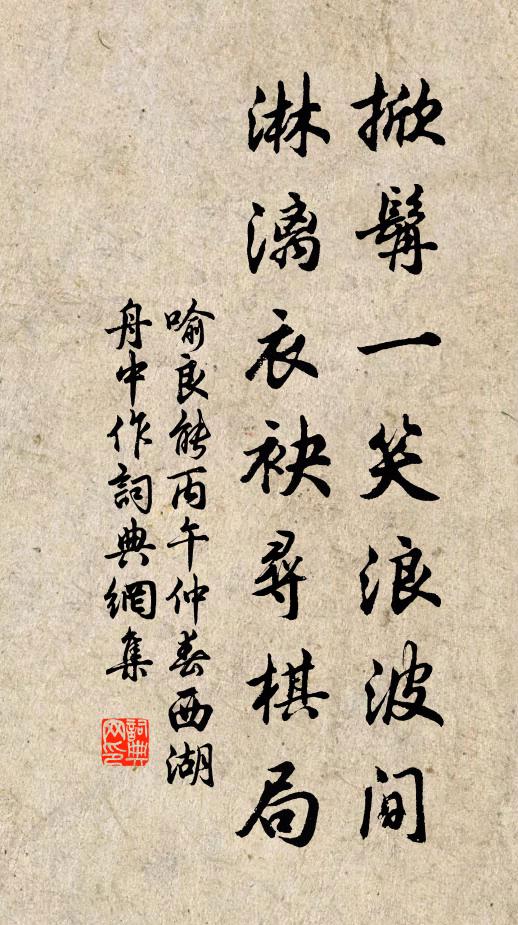 掀髯一笑浪波间
淋漓衣袂寻棋局
喻良能丙午仲春西湖
舟中作詞典網集
詞典
网印